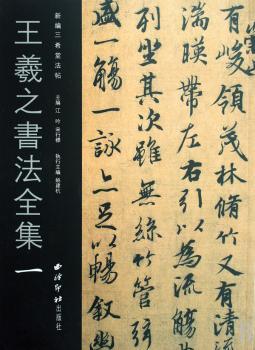 有峻領茂林脩竹又有清流
湍暎帶左右引以為流觴
列坐其次雖無絲竹管弦
盛一觴一詠亦足以暢敘幽
新編三希堂法帖
王羲之書法全集 一
主編 江吟
西泠印社出版社